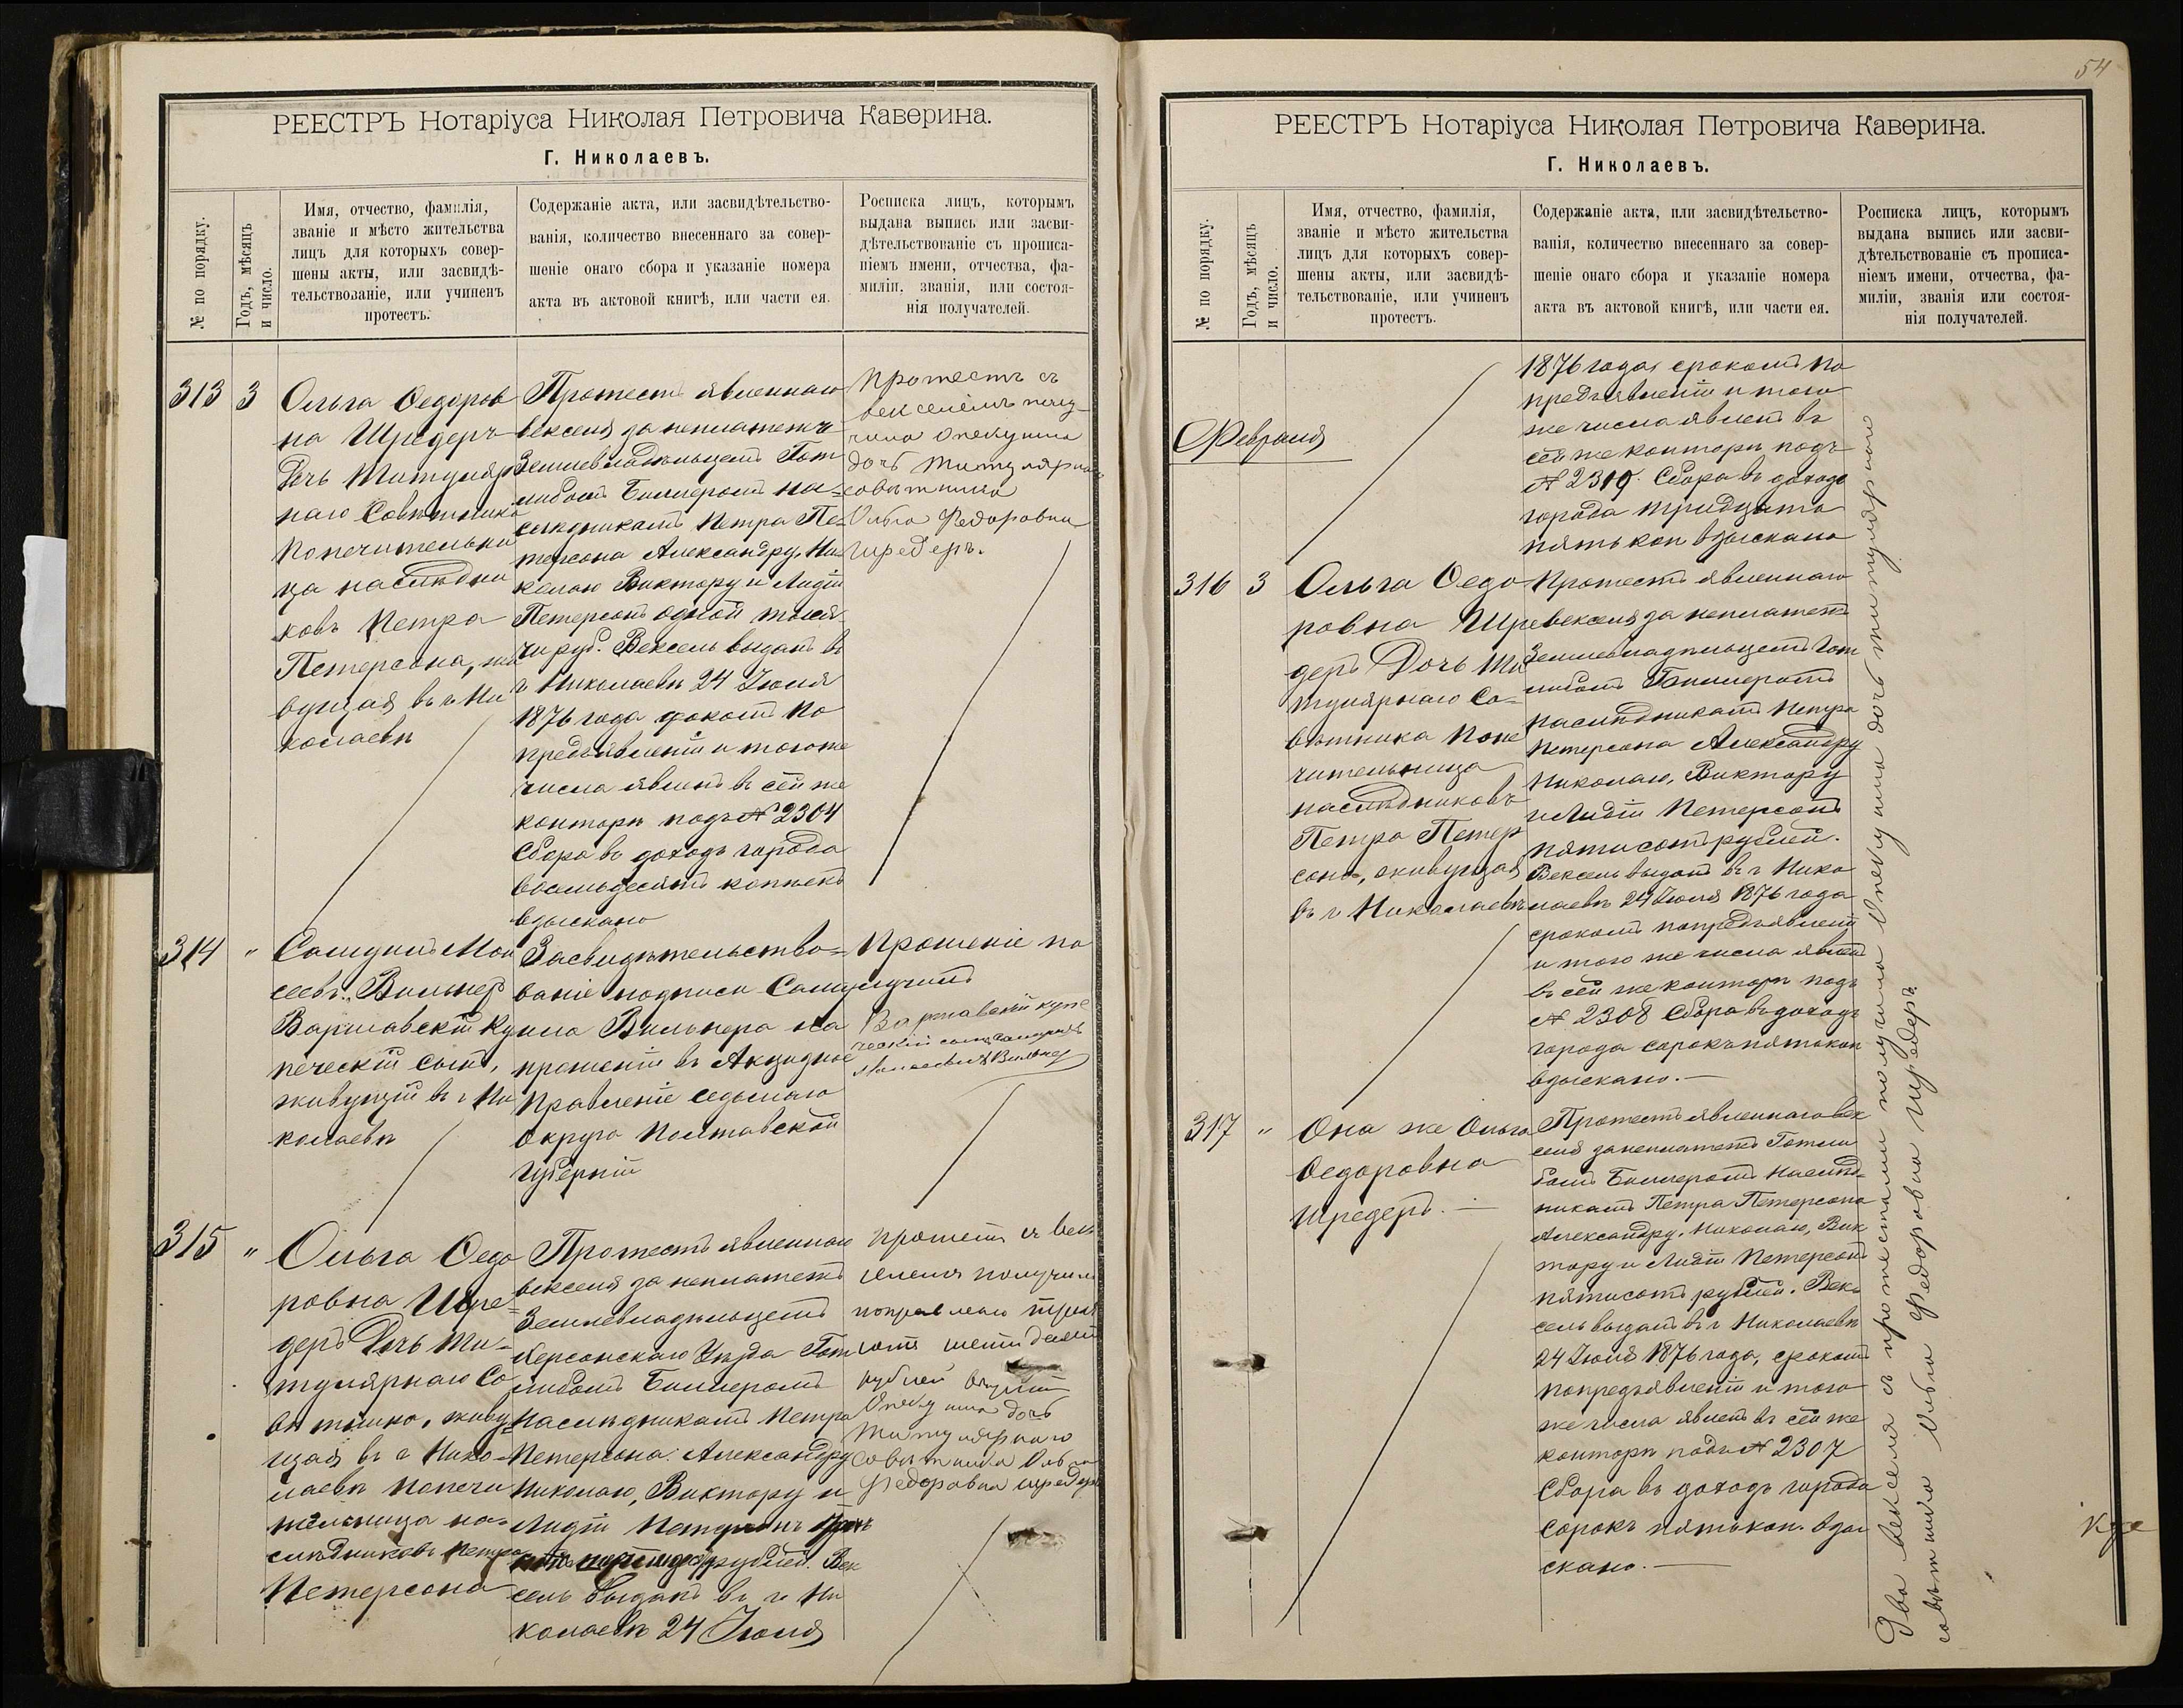 РЕЕСТРЪ Нотаріуса Николая Петровича Каверина.
Г. Николаевъ.
№ по порядку.
Годъ, мѣсяцъ
и число.
Имя, отчество, фамилія,
званіе и мѣсто жительства
лицъ для которыхъ совер-
шены акты, или засвидѣ-
тельствованіе, или учиненъ
протестъ.
Содержаніе акта, или засвидѣтельство-
ванія, количество внесеннаго за совер-
шеніе онаго сбора и указаніе номера
акта въ актовой книгѣ, или части ея.
Росписка лицъ, которымъ
выдана выпись или засви-
дѣтельствованіе съ прописа-
ніемъ имени, отчества, фа-
миліи, званія, или состоя-
нія получателей.
313
3
Ольга Ѳедоров
на Шредеръ
Дочь Титуляр
наго Совѣтника
попечительни
ца наслѣдни
ковъ Петра
Петерсона, жи
вущая въ г Ни
колаевѣ
Протестъ явленнаго
векселя за неплатежъ
Землевладѣльцемъ Гот
либомъ Биллеромъ на-
слѣдникамъ Петра Пе-
терсона Александру, Ни
колаю Виктору и Лидіи
Петерсонъ одной тыся
чи руб. Вексель выданъ въ
г Николаевѣ 24 Іюля
1876 года срокомъ по
предъявленіи и того же
числа явленъ въ сей же
конторѣ подъ № 2304
Сбора въ доходъ города
восемьдесятъ копѣекъ
взыскано
Протестъ съ
векселемъ полу-
чила Опекунша
дочь титулярна
совѣтника
Ольга Федоровна
Шредеръ.
314
"
Самуилъ Мои
сеевъ Вильнер
Варшавскій Ку
печескій сынъ,
живущій въ г Ни
колаевѣ
Засвидѣтельство-
ваніе подписи Саму
ила Вильнера на
прошеніи въ Акцизное
Правленіе седьмаго
округа Полтавской
Губерніи
Прошеніе по
лучилъ
Варшавскій купе
ческій сынъ Самуилъ
Моисеевичъ Вильнер
315
"
Ольга Ѳедо
ровна Шре=
деръ Дочь Ти-
тулярнаго Со
вѣтника, живу
щая въ г Нико-
лаевѣ попечи
тельница на-
слѣдниковъ Петра
Петерсона
Протестъ явленнаго
векселя за неплатежъ
Землевладѣльцемъ
Херсонскаго Уѣзда Гот
либомъ Биллеромъ
Наслѣдникамъ Петра
Петерсона: Александру
Николаю, Виктору и
Лидіи Петерсонъ
рублей. Век
сель выданъ въ г. Ни
колаевѣ 24 Іюля
протестъ съ век
селемъ получила
рублей
Опекунша дочь
Титулярнаго
совѣтника Ольга
Федоровна Шредеръ
54
РЕЕСТРЪ Нотаріуса Николая Петровича Каверина.
Г. Николаевъ.
№ по порядку.
Годъ, мѣсяцъ
и число.
Имя, отчество, фамилія,
званіе и мѣсто жительства
лицъ для которыхъ совер-
шены акты, или засвидѣ-
тельствованіе, или учиненъ
протестъ.
Содержаніе акта, или засвидѣтельство-
ванія, количество внесеннаго за совер-
шеніе онаго сбора и указаніе номера
акта въ актовой книгѣ, или части ея.
Росписка лицъ, которымъ
выдана выпись или засви-
дѣтельствованіе съ прописа-
ніемъ имени, отчества, фа-
миліи, званія или состоя-
нія получателей.
Февраля
1876 года, срокомъ по
предъявленіи и того
же числа явленъ въ
сей же конторѣ подъ
Сбора въ доходъ
города тридцать
пять коп взыскано
316
3
Ольга Ѳедо
ровна Шре
деръ Дочь Ти
тулярнаго Со-
вѣтника Попе
чительница
наслѣдниковъ
Петра Петер
сона, живущая
въ г Николаевѣ
Протестъ явленнаго
векселя за неплатежъ
Землевладѣльцемъ Гот
либомъ Биллеромъ
наслѣдникамъ Петра
Петерсона Александру
Николаю, Виктору
и Лидіи Петерсонъ
пятисотъ рублей.
Вексель выданъ въ г Нико
лаевѣ 24 Іюля 1876 года
срокомъ по предъявленіи
и того же числа явленъ
въ сей же конторѣ подъ
№ 2308 Сбора въ доходъ
города сорокъ пять коп
взыскано.—
317
"
Она же Ольга
Ѳедоровна
Шредеръ. —
Протестъ явленнаго век
селя за неплатежъ Готли
бомъ Биллеромъ Наслѣд-
никамъ Петра Петерсона
Александру, Николаю, Вик
тору и Лидіи Петерсонъ
пятисотъ рублей. Век-
сель выданъ въ г Николаевѣ
24 Іюля 1876 года, срокомъ
по предъявленіи и того
же числа явленъ въ сей же
конторѣ подъ № 2307
Сбора въ доходъ города
сорокъ пять коп. взы
скано. —
Два векселя съ протестами получила Опекунша дочь титулярнаго
совѣтника Ольга Федоровна Шредеръ.